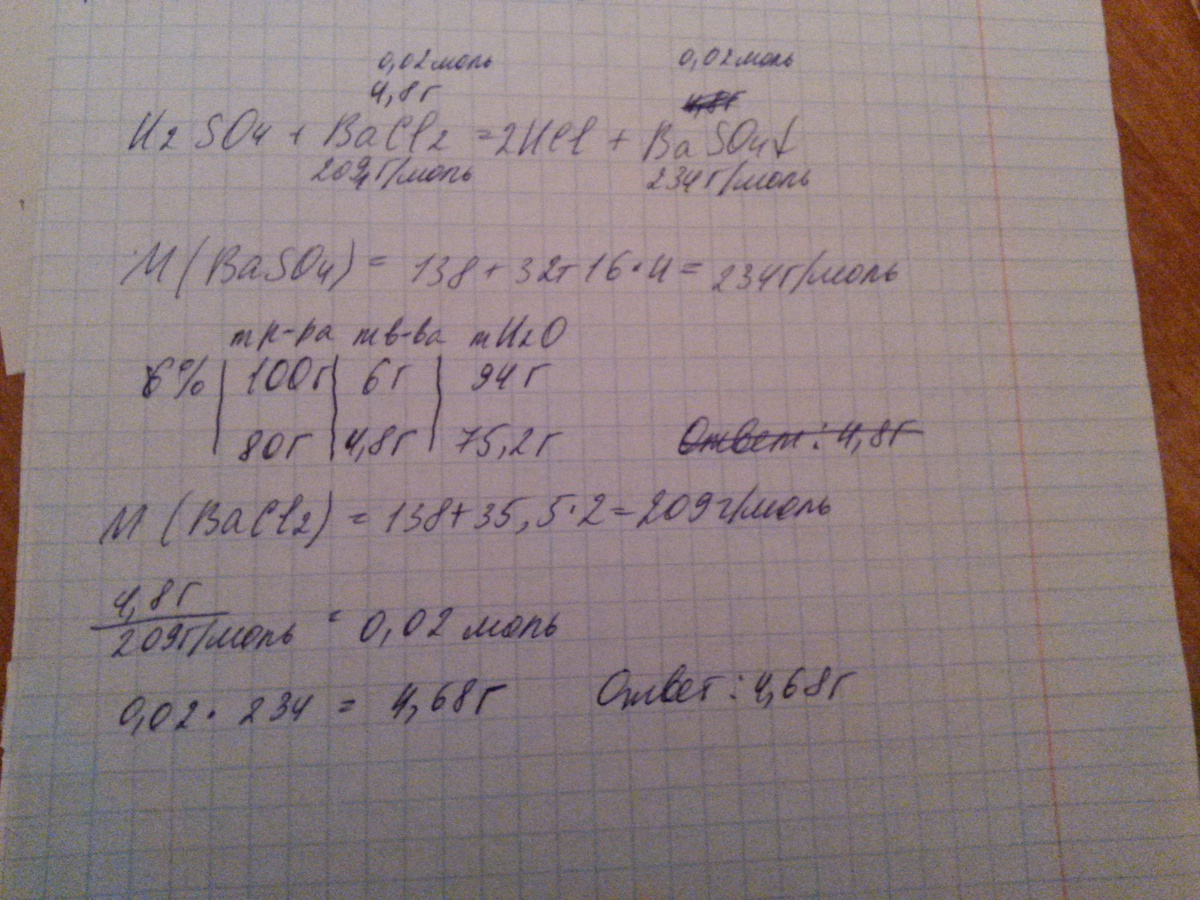 0,02 моль 0,02 моль
4,8 г 4,8г
H2 SO4 + BaCl2 = 2HCl + BaSO4↓
209г/моль 234 г/моль
M (BaSO4) = 138 + 32+ 16·4 = 234г/моль
m р-ра m в-ва m H2O
6% 100г 6 г 94 г
80г 4,8г 75,2г Ответ: 4,8г
M (BaCl2) = 138+35,5·2=209 г/моль
4,8г
209г/моль = 0,02 моль
0,02 · 234 = 4,68г Ответ: 4,68г